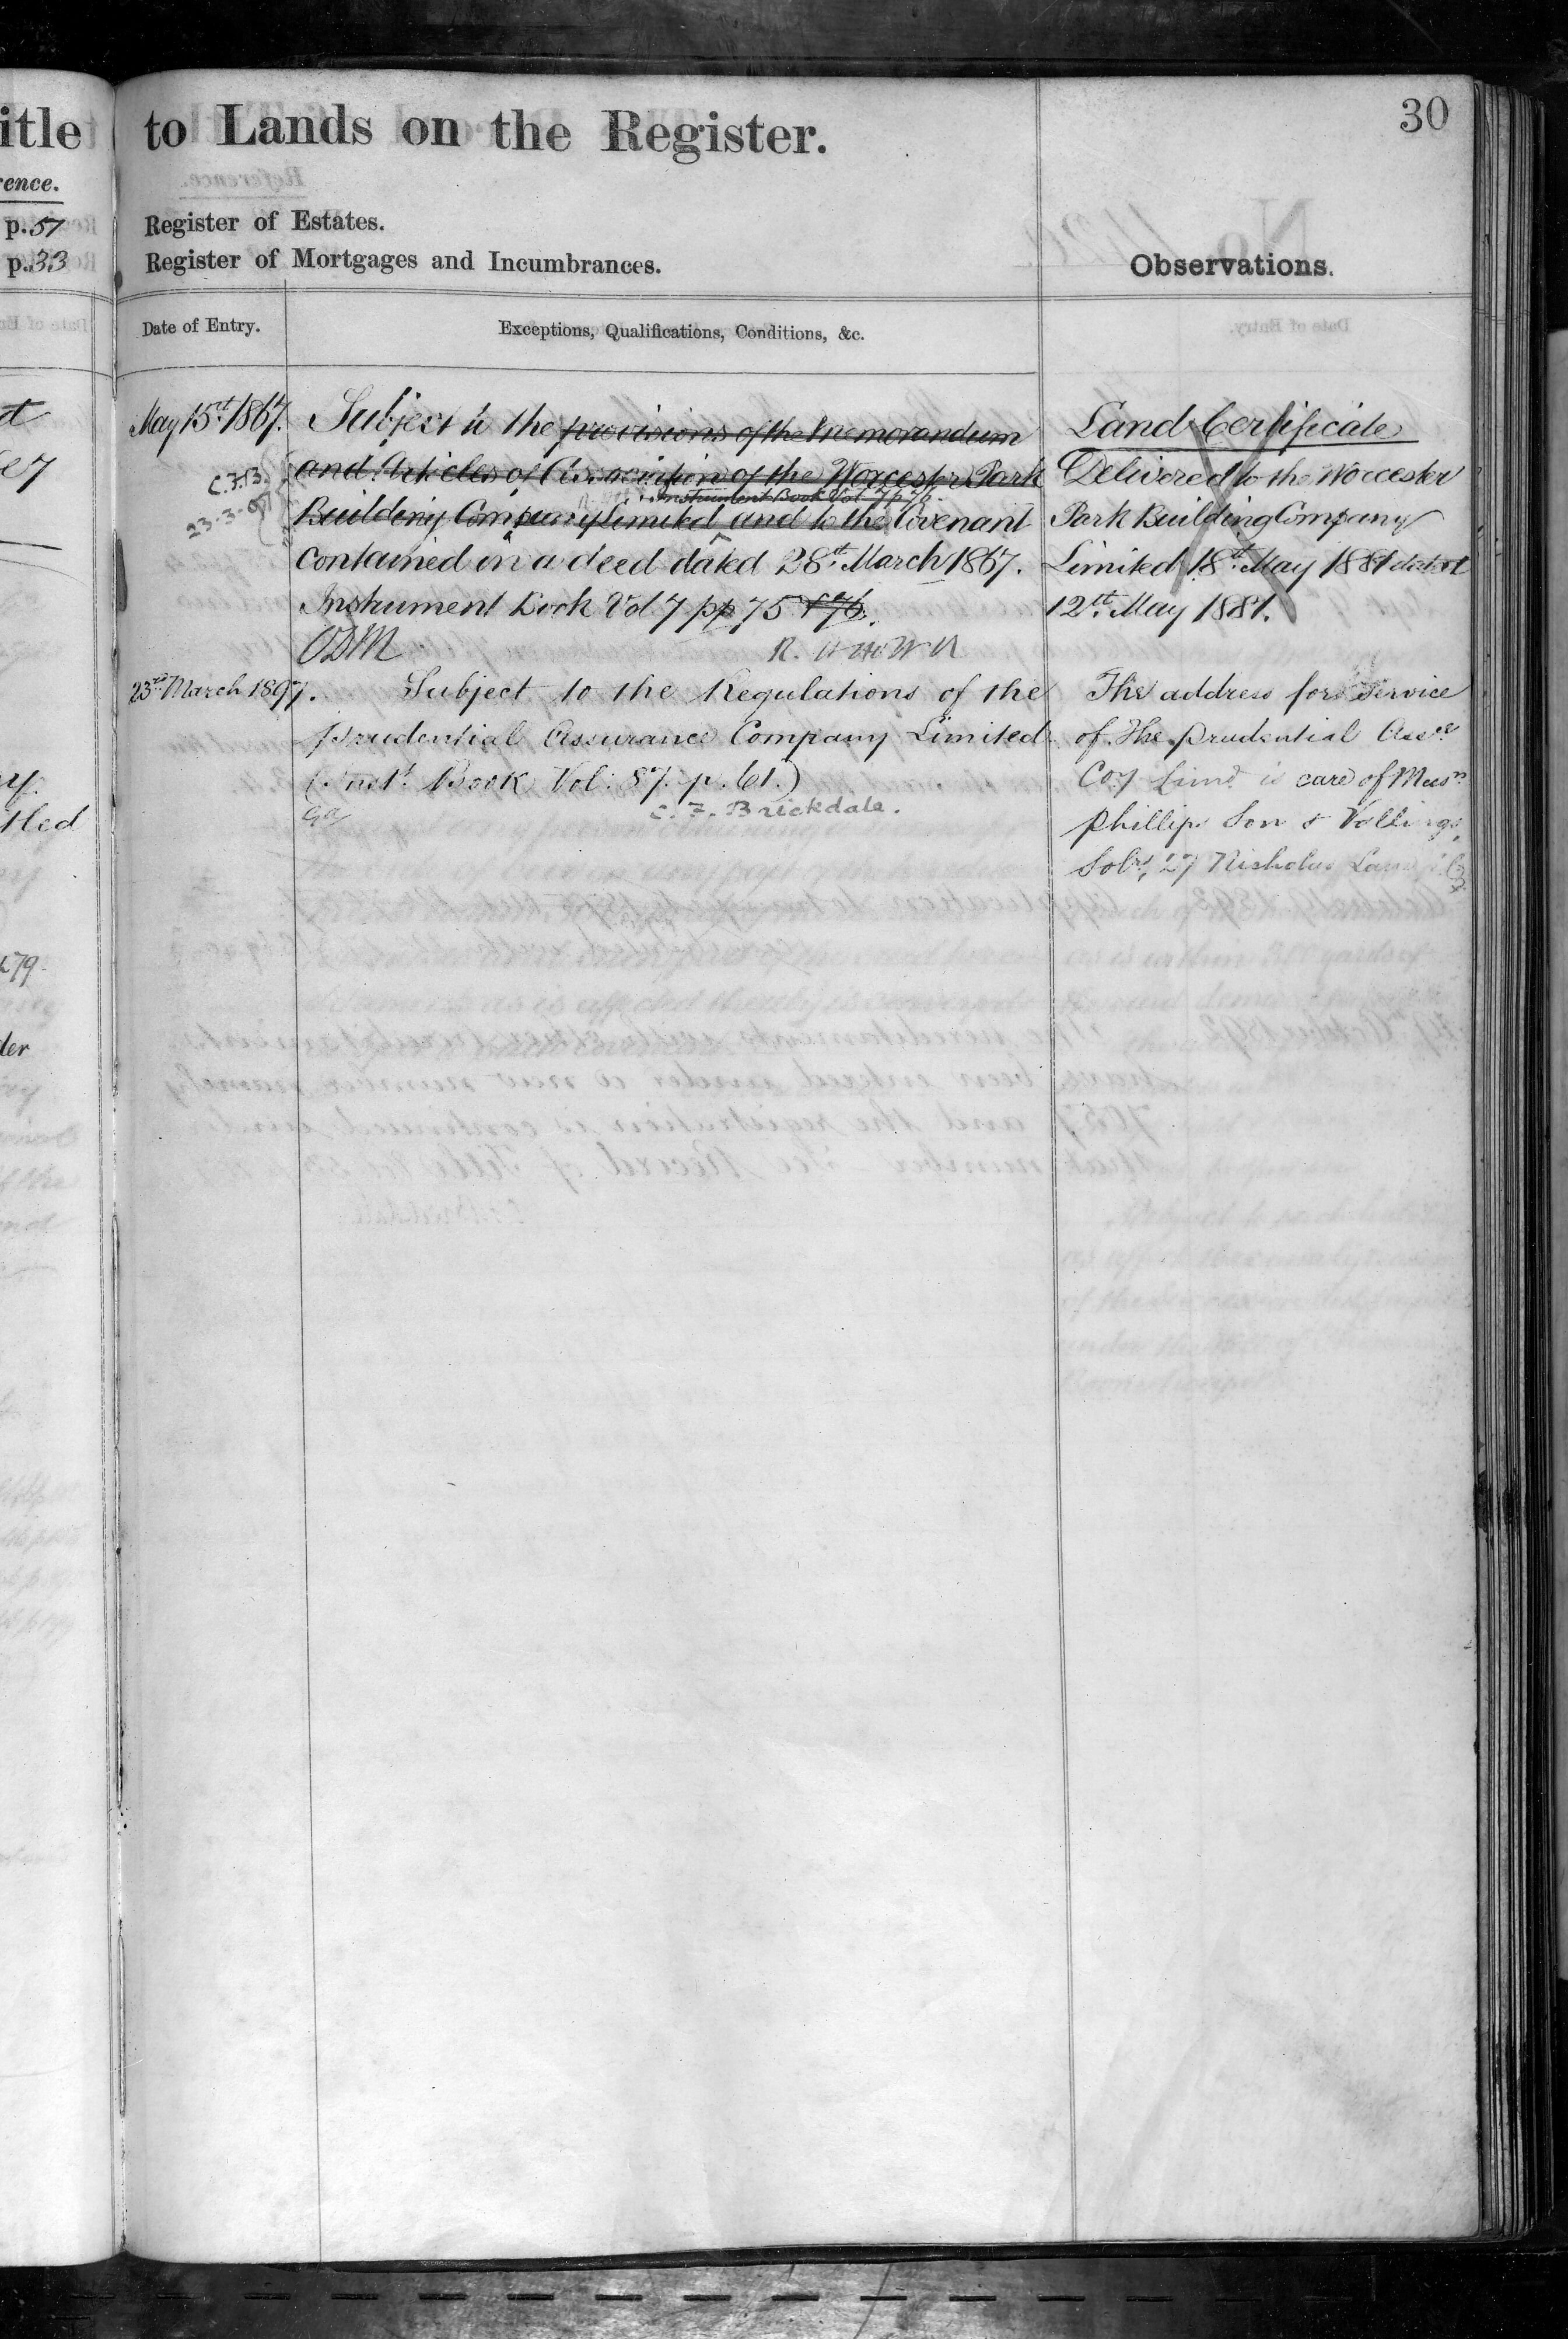 itle
to Lands on the Register.
30
ence.
p. 57
p. 33
Register of Estates.
Register of Mortgages and Incumbrances.
Observations.
Date of Entry.
Exceptions, Qualifications, Conditions, &c.
May 15th 1867.
Subject to the provisions of the Memorandum
and Articles of Association of the Worcester Park
Instrument Book Vol 7 p 76.
Building Company Limited and to the Covenant
contained in a deed dated 28th March 1867.
Instrument Book Vol 7 pp 75 & 76.
ODM
C.F.B.
23-3-97
Land Certificate
Delivered to the Worcester
Park Building Company
Limited 18th May 1881 dated
12th May 1881.
23rd March 1897.
Subject to the Regulations of the
Prudential Assurance Company Limited
(Inst. Book Vol: 87. p. 61.)
C. F. Brickdale.
The address for Service
of The Prudential Assce
Coy Limd is care of Messrs
Phillips Son &
Solrs, 27 Nicholas Lane